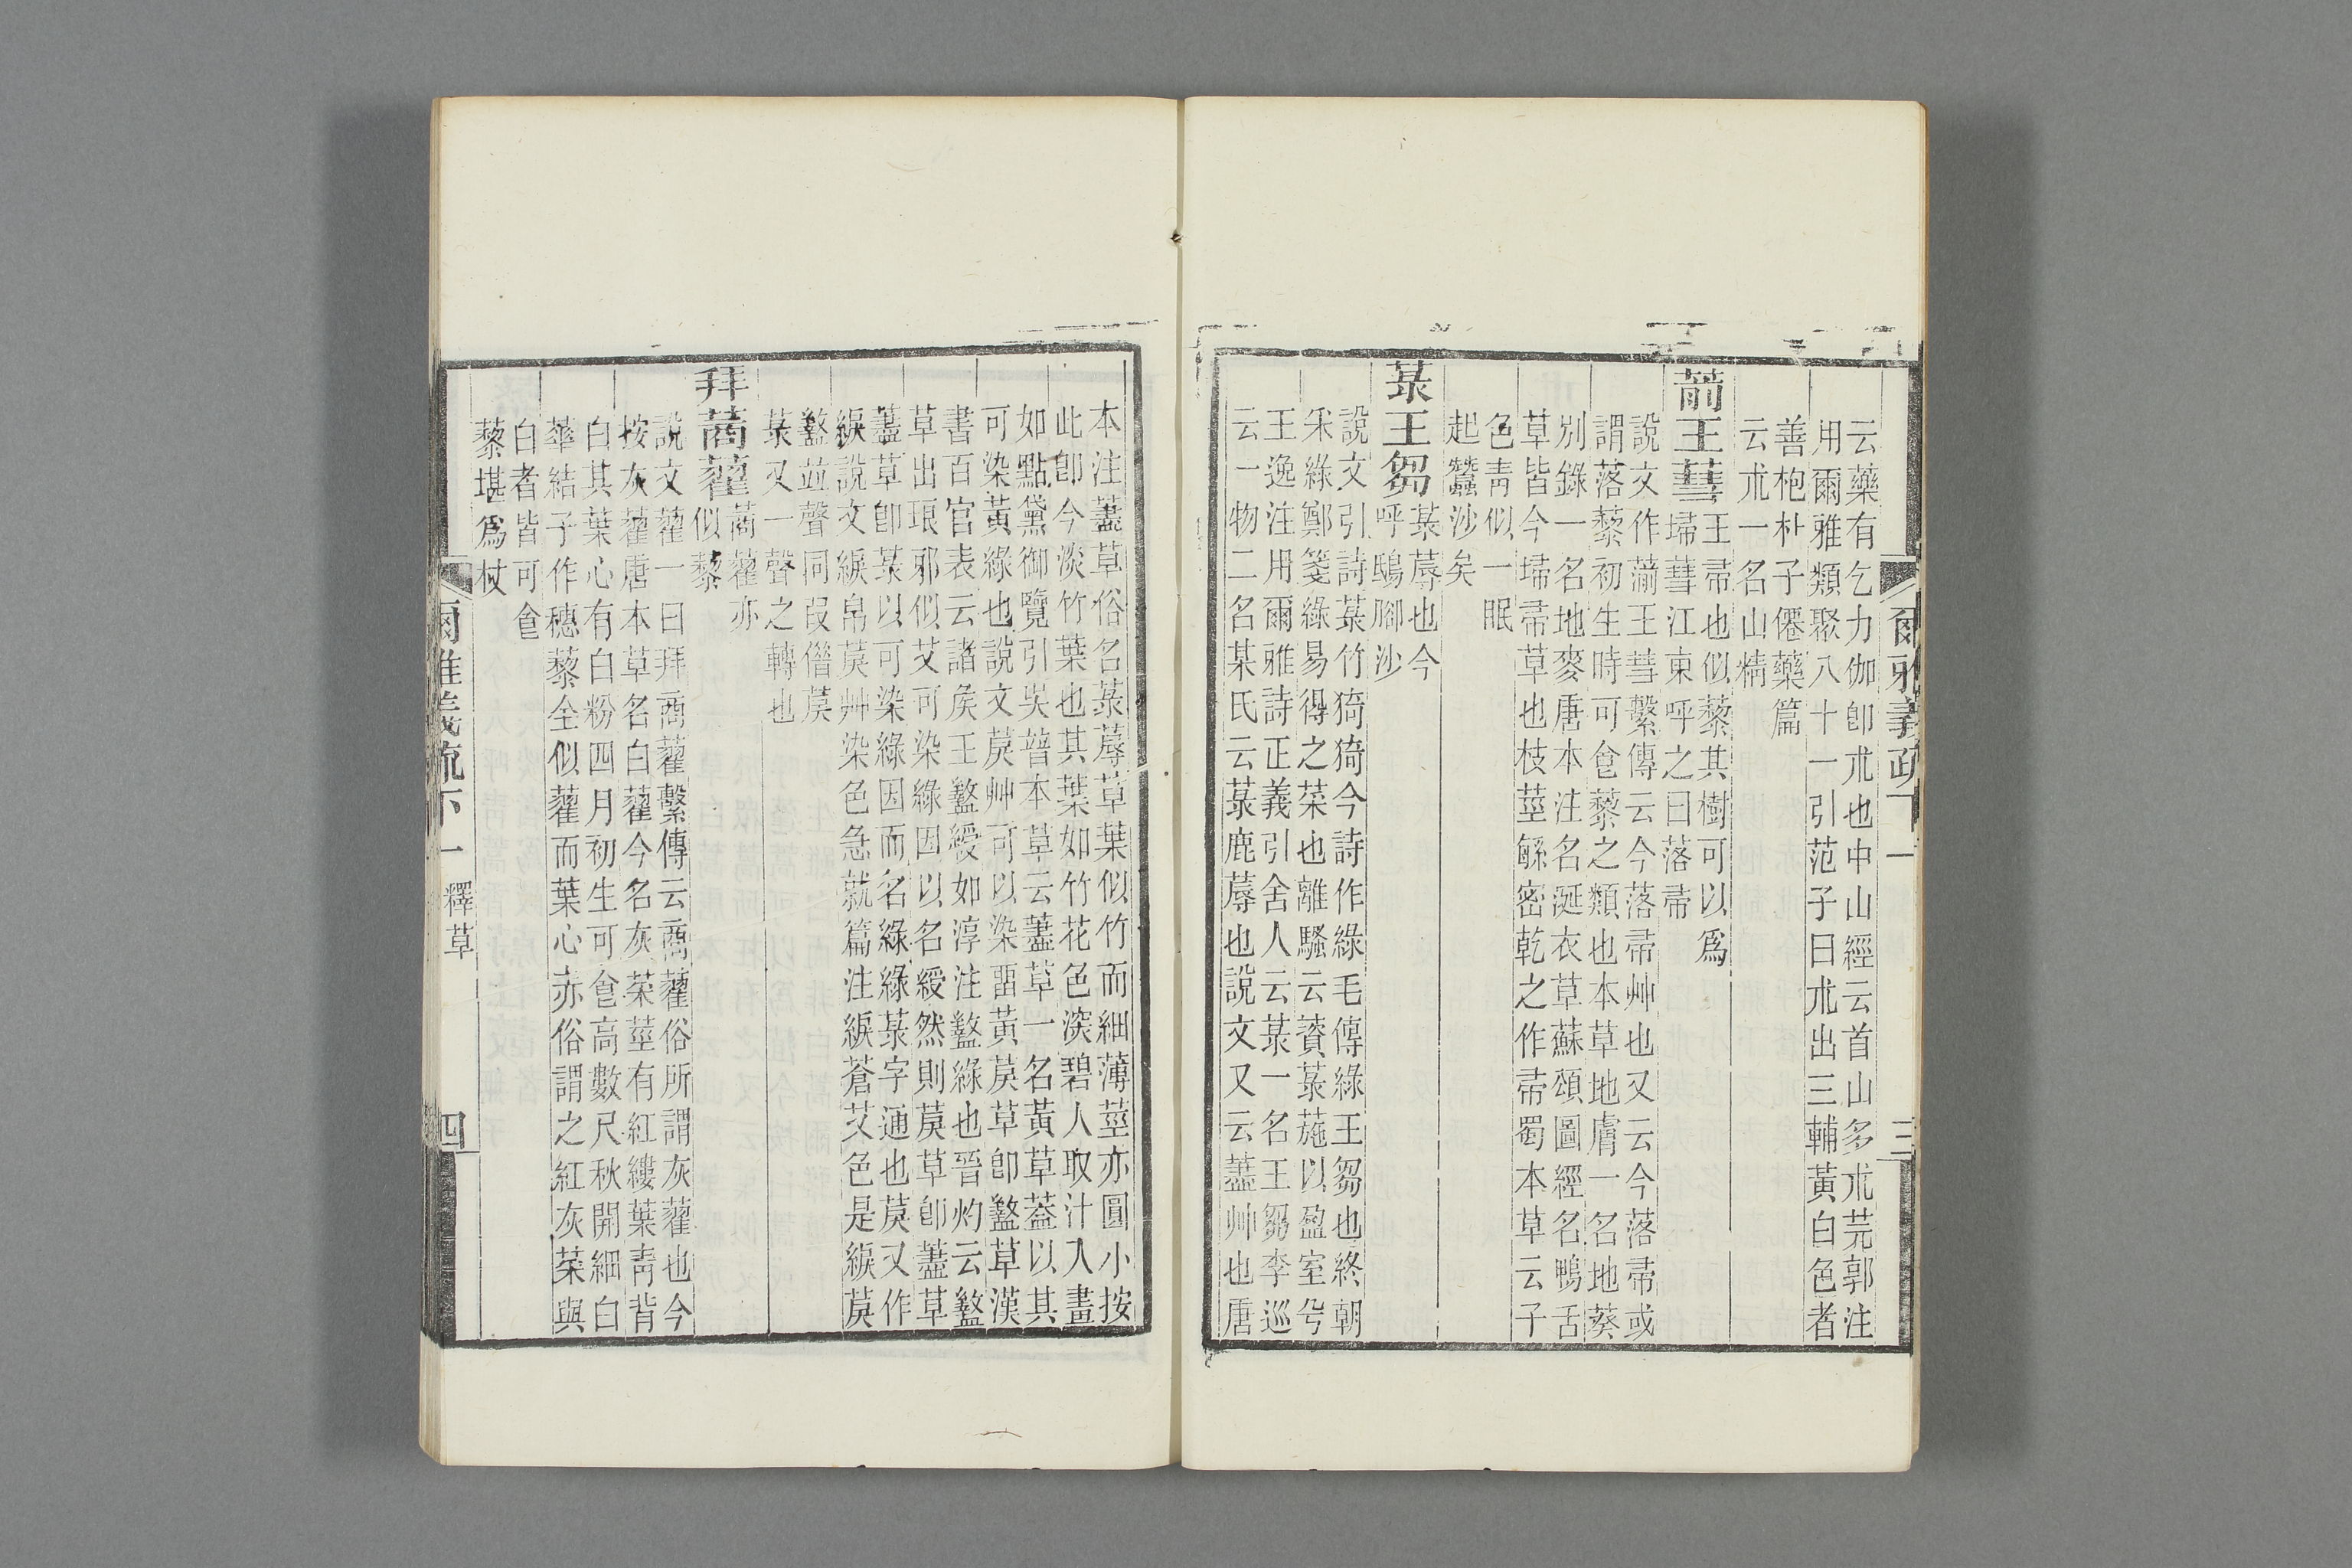 爾雅義疏下一
三
云藥有乞力伽卽朮也中山經云首山多朮芫郭注
用爾雅類聚八十一引范子曰朮出三輔黃白色者
善枹朴子僊藥篇
云朮一名山精
葥王蔧王帚也似藜其樹可以爲
埽蔧江東呼之曰落帚
說文作湔王彗繫傳云今落帚艸也又云今落帚或
謂落藜初生時可食藜之類也本草地膚一名地葵
別錄一名地麥唐本注名涎衣草蘇頌圖經名鴨舌
草皆今埽帚草也枝莖緐密乾之作帚蜀本草云子
色靑似一眠
起蠶沙矣
菉王芻菉蓐也今
呼鴟腳沙
說文引詩菉竹猗猗今詩作綠毛傳綠王芻也終朝
采綠鄭箋綠易得之菜也離騷云薋菉葹以盈室兮
王逸注用爾雅詩正義引舍人云菉一名王芻李巡
云一物二名某氏云菉鹿蓐也說文又云藎艸也唐
本注藎草俗名菉蓐草葉似竹而細薄莖亦圓小按
此卽今淡竹葉也其葉如竹花色深碧人取汁入畫
如點黛御覽引吳普本草云藎草一名黃草蓋以其
可染黃綠也說文莀艸可以染畱黃莀草卽盭草漢
書百官表云諸矦王盭綬如淳注盭綠也晉灼云盭
草出琅邪似艾可染綠因以名綬然則莀草卽藎草
藎草卽菉以可染綠因而名綠綠菉字通也莀又作
綟說文綟帛莀艸染色急就篇注綟蒼艾色是綟莀
盭並聲同叚借莀
菉又一聲之轉也
拜蔏藋蔏藋亦
似藜
說文藋一曰拜商藋繫傳云商藋俗所謂灰藋也今
按灰藋唐本草名白藋今名灰菜莖有紅縷葉靑背
白其葉心有白粉四月初生可食高數尺秋開細白
華結子作穗藜全似藋而葉心赤俗謂之紅灰菜與
白者皆可食
藜堪爲杖
爾雅義疏下一 釋草
四